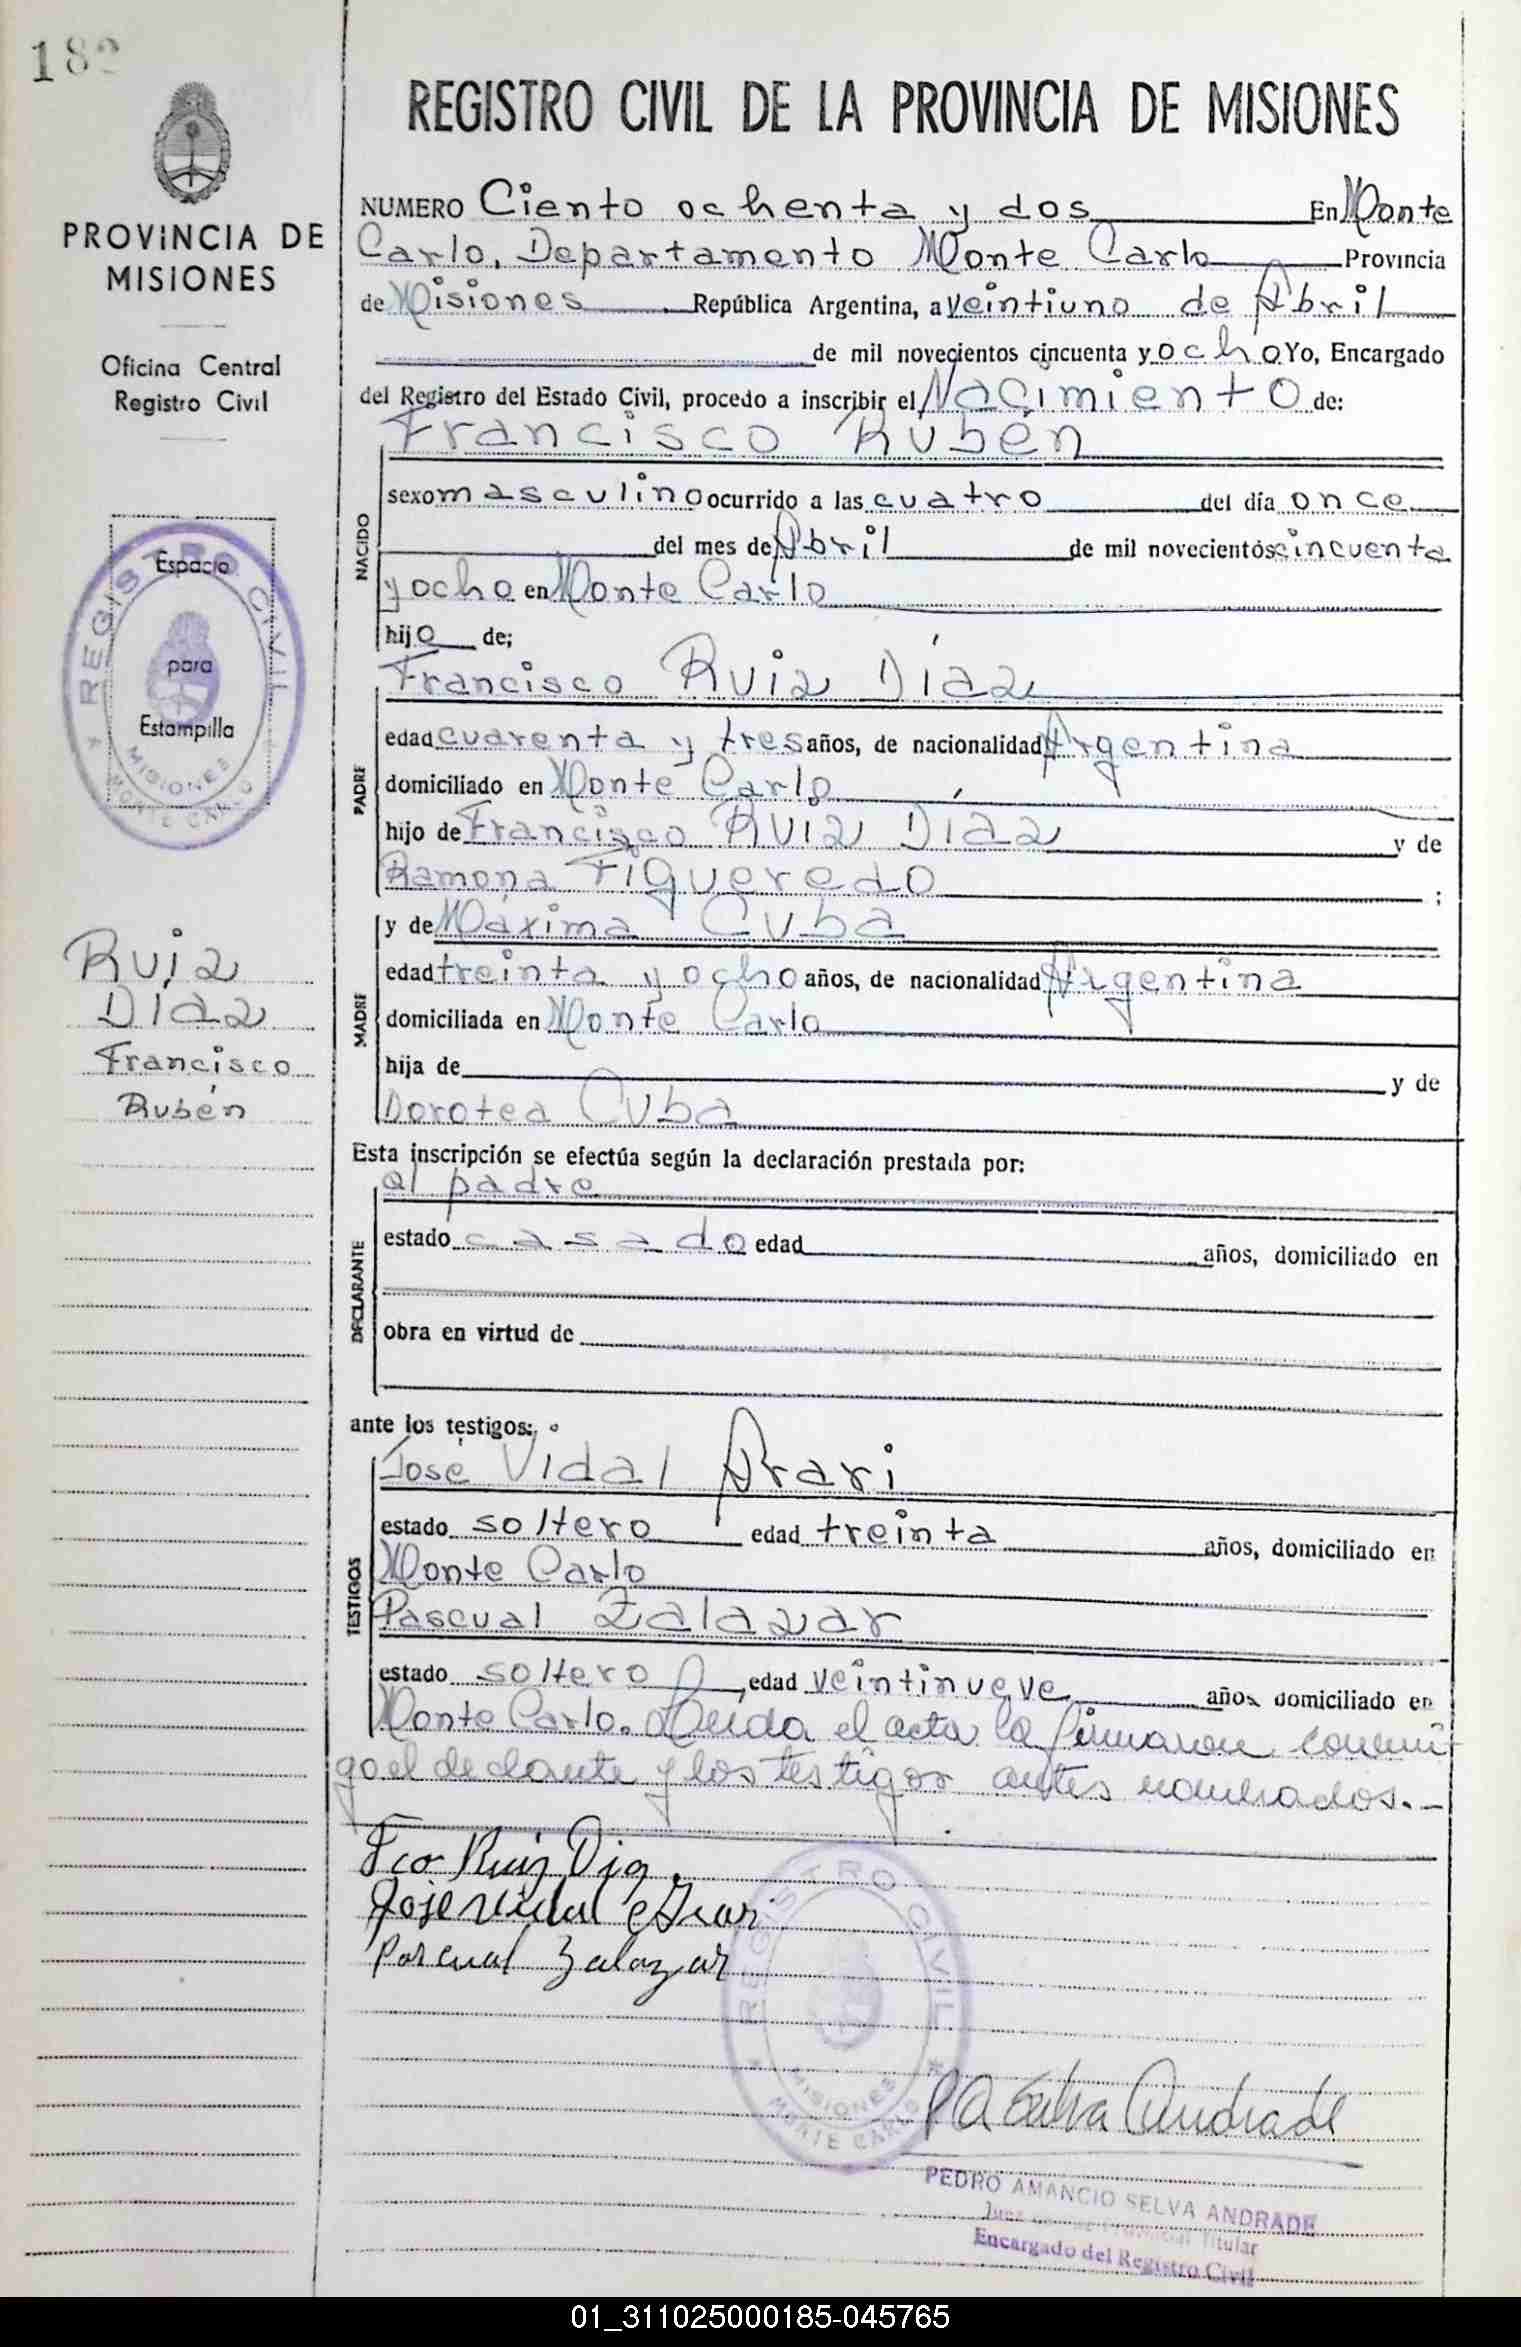 182
PROVINCIA DE
MISIONES
Oficina Central
Registro Civil
Espacio
para
Estampilla
REGISTRO CIVIL
MISIONES
MONTE CARLO
Ruiz
Díaz
Francisco
Rubén
REGISTRO CIVIL DE LA PROVINCIA DE MISIONES
NUMERO Ciento ochenta y dos En Monte
Carlo, Departamento Monte Carlo Provincia
de Misiones República Argentina, a veintiuno de Abril
de mil novecientos cincuenta y ocho Yo, Encargado
del Registro del Estado Civil, procedo a inscribir el Nacimiento de:
Francisco Rubén
NACIDO
sexo masculino ocurrido a las cuatro del día once
del mes de Abril de mil novecientos cincuenta
y ocho en Monte Carlo
hijo de;
Francisco Ruiz Díaz
PADRE
edad cuarenta y tres años, de nacionalidad Argentina
domiciliado en Monte Carlo
hijo de Francisco Ruiz Díaz y de
Ramona Figueredo ;
MADRE
y de Máxima Cuba
edad treinta y ocho años, de nacionalidad Argentina
domiciliada en Monte Carlo
hija de y de
Dorotea Cuba
Esta inscripción se efectúa según la declaración prestada por:
DECLARANTE
el padre
estado casado edad años, domiciliado en
obra en virtud de
ante los testigos:
TESTIGOS
José Vidal Arari
estado soltero edad treinta años, domiciliado en
Monte Carlo
Pascual Zalazar
estado soltero, edad veintinueve años domiciliado en
Monte Carlo. Leida el acta la firmaron conmi
go el declante y los testigos antes nombrados.-
Fco Ruiz Diaz
Jose Vidal
Pascual Zalazar
REGISTRO CIVIL
MISIONES
MONTE CARLO
P A Selva Andrade
PEDRO AMANCIO SELVA ANDRADE
Juez Titular
Encargado del Registro Civil
01_311025000185-045765